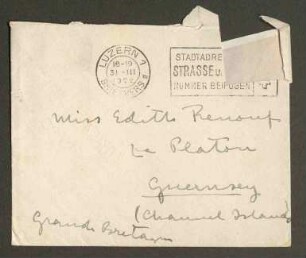 LUZERN 1
18-19
31 III
STADTADRE
STRASSE U.
NUMMER BEIFÜGEN
Miss Edith Renouf
La Platon
Guernsey
(Channel Islands
Grande Bretagne